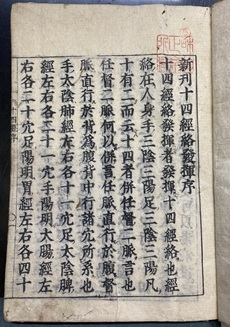 新刊十四經絡發揮序
十四經絡發揮者發揮十四經絡也經
絡在人身手三陰三陽足三陰三陽凡
十有二而云十四者併任督二脈言也
任督二脈何以併言任脈直行於腹督
脈直行於背為腹背中行諸穴所系也
手太陰肺經左右各十一穴足太陰脾
經左右各二十一穴手陽明大腸經左
右各二十穴足陽明胃經左右各四十